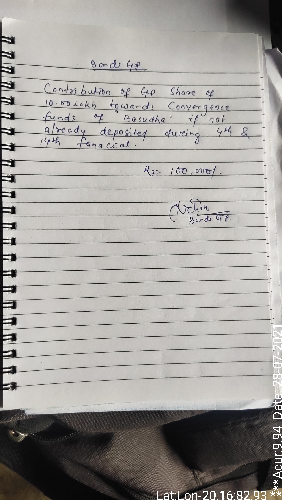 Bondi GP.
Contribution of GP Share of
10.00 lakh towards Convergence
funds of "Basudha" if not
already deposited during 4th &
14th Fanacial.
Rs= 100,000/.
GP
LatLon-20.16:82.93
***Acur:9.94 Date-29-07-2021